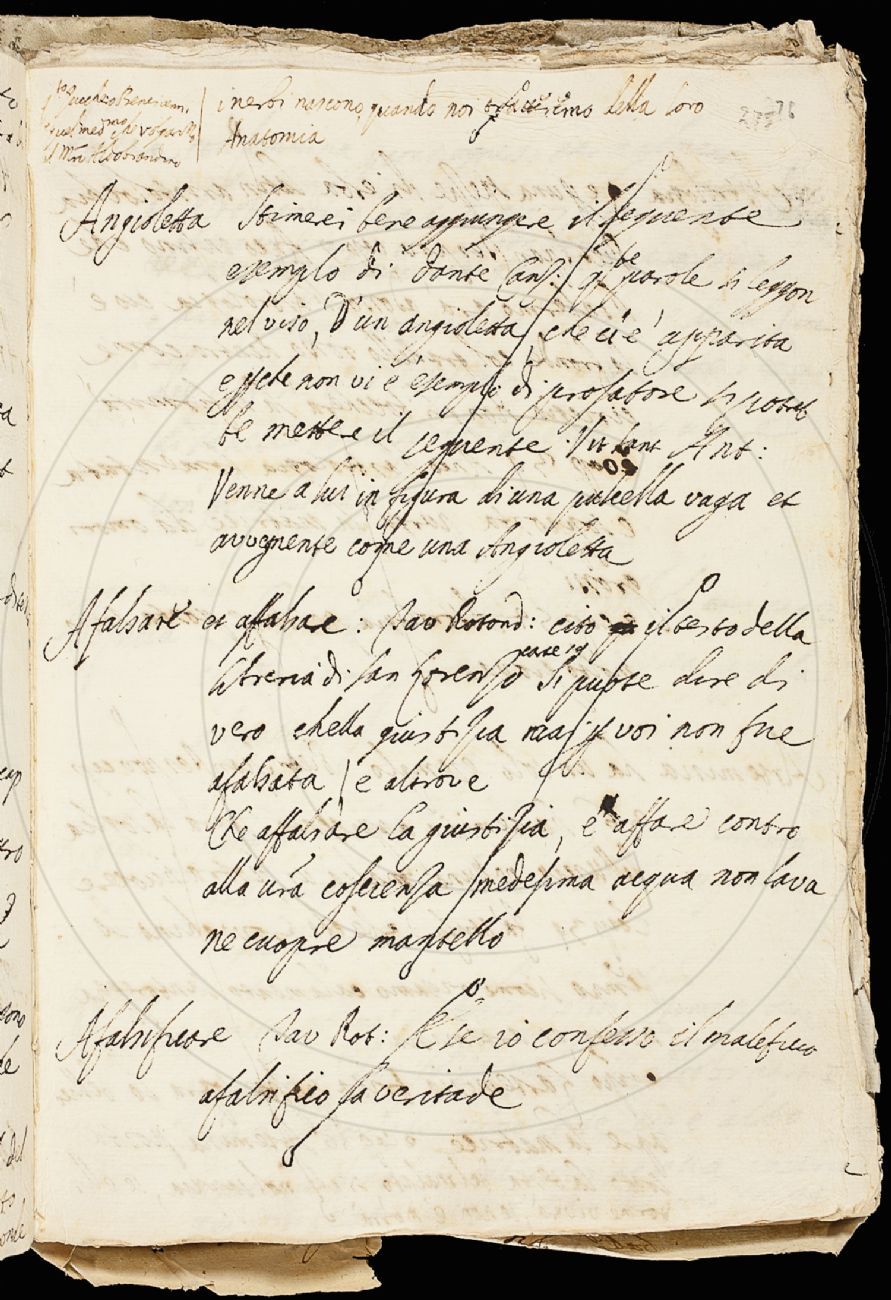 i nerbi nascono, quando noi della loro
Anatomia
Angioletta Stimerei bene aggiungere il seguente
esempio di Dante Canz: parole si leggon
nel viso, D'un angioletta, che ci è apparita
e perche non vi è esempio di prosatore si potreb
be mettere il seguente. Vit. Sant Ant:
Venne a lui in figura di una pulcella vaga et
avvegnente come una Angioletta
Afalsare et affalsare: Pav Rotond: cito il testo della
libreria di San Lorenzo Si puote dire di
vero chella giustizia mai p voi non fue
afalsata / e altrove
Che affalsare la giustizia, è affare contro
alla vra coscienza / medesima acqua non lava
ne cuopre mantello
Afalsificare Pav Rot: Se io confesso il maleficio
afalsifico la veritade